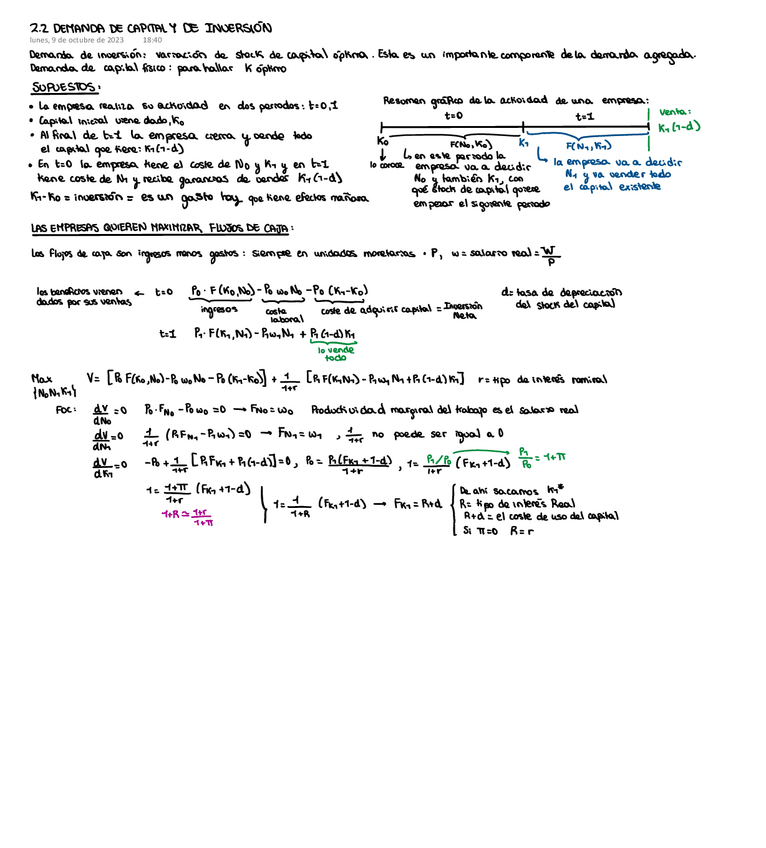 2.2 DEMANDA DE CAPITAL Y DE INVERSIÓN
lunes, 9 de octubre de 2023 18:40
Demanda de inversión: variación de stock de capital óptimo. Esta es un importante componente de la demanda agregada.
Demanda de capital físico: para hallar K óptimo
SUPUESTOS:
• La empresa realiza su actividad en dos periodos: t=0,1
• Capital inicial viene dado, K₀
• Al final de t=1 la empresa cierra y vende todo
el capital que tiene: K₁(1-d)
• En t=0 la empresa tiene el coste de N₀ y K₁ y en t=1
tiene coste de N₁ y recibe ganancias de vender K₁(1-d)
K₁-K₀ = inversión = es un gasto hoy que tiene efectos mañana
Resumen gráfico de la actividad de una empresa:
t=0 t=1
venta:
K₁(1-d)
K₀ F(N₀,K₀) K₁ F(N₁,K₁)
lo conoce
en este periodo la
empresa va a decidir
N₀ y también K₁, con
qué stock de capital quiere
empezar el siguiente periodo
la empresa va a decidir
N₁ y va vender todo
el capital existente
LAS EMPRESAS QUIEREN MAXIMIZAR FLUJOS DE CAJA:
Los flujos de caja son ingresos menos gastos: siempre en unidades monetarias · P, w = salario real = W/P
los beneficios vienen
dados por sus ventas
← t=0 P₀·F(K₀,N₀)-P₀w₀N₀-P₀(K₁-K₀)
ingresos
coste
laboral
coste de adquirir capital = Inversión
Neta
d= tasa de depreciación
del stock del capital
t=1 P₁·F(K₁,N₁)-P₁w₁N₁+P₁(1-d)K₁
lo vende
todo
Max V= [P₀F(K₀,N₀)-P₀w₀N₀-P₀(K₁-K₀)] + 1/1+r [P₁F(K₁N₁)-P₁w₁N₁+P₁(1-d)K₁] r=tipo de interés nominal
{N₀N₁K₁}
FOC: dV/dN₀ =0 P₀·F_N₀-P₀w₀=0 → F_N₀=w₀ Productividad marginal del trabajo es el salario real
dV/dN₁ =0 1/1+r (P₁F_N₁-P₁w₁)=0 → F_N₁=w₁, 1/1+r no puede ser igual a 0
dV/dK₁ =0 -P₀+1/1+r [P₁F_K₁+P₁(1-d)]=0, P₀= P₁(F_K₁+1-d)/1+r, 1= P₁/P₀/1+r (F_K₁+1-d) P₁/P₀=1+π
1= 1+π/1+r (F_K₁+1-d)
1+R≃1+r/1+π
1= 1/1+R (F_K₁+1-d) → F_K₁=R+d
De ahí sacamos K₁*
R= tipo de interés Real
R+d = el coste de uso del capital
Si π=0 R=r